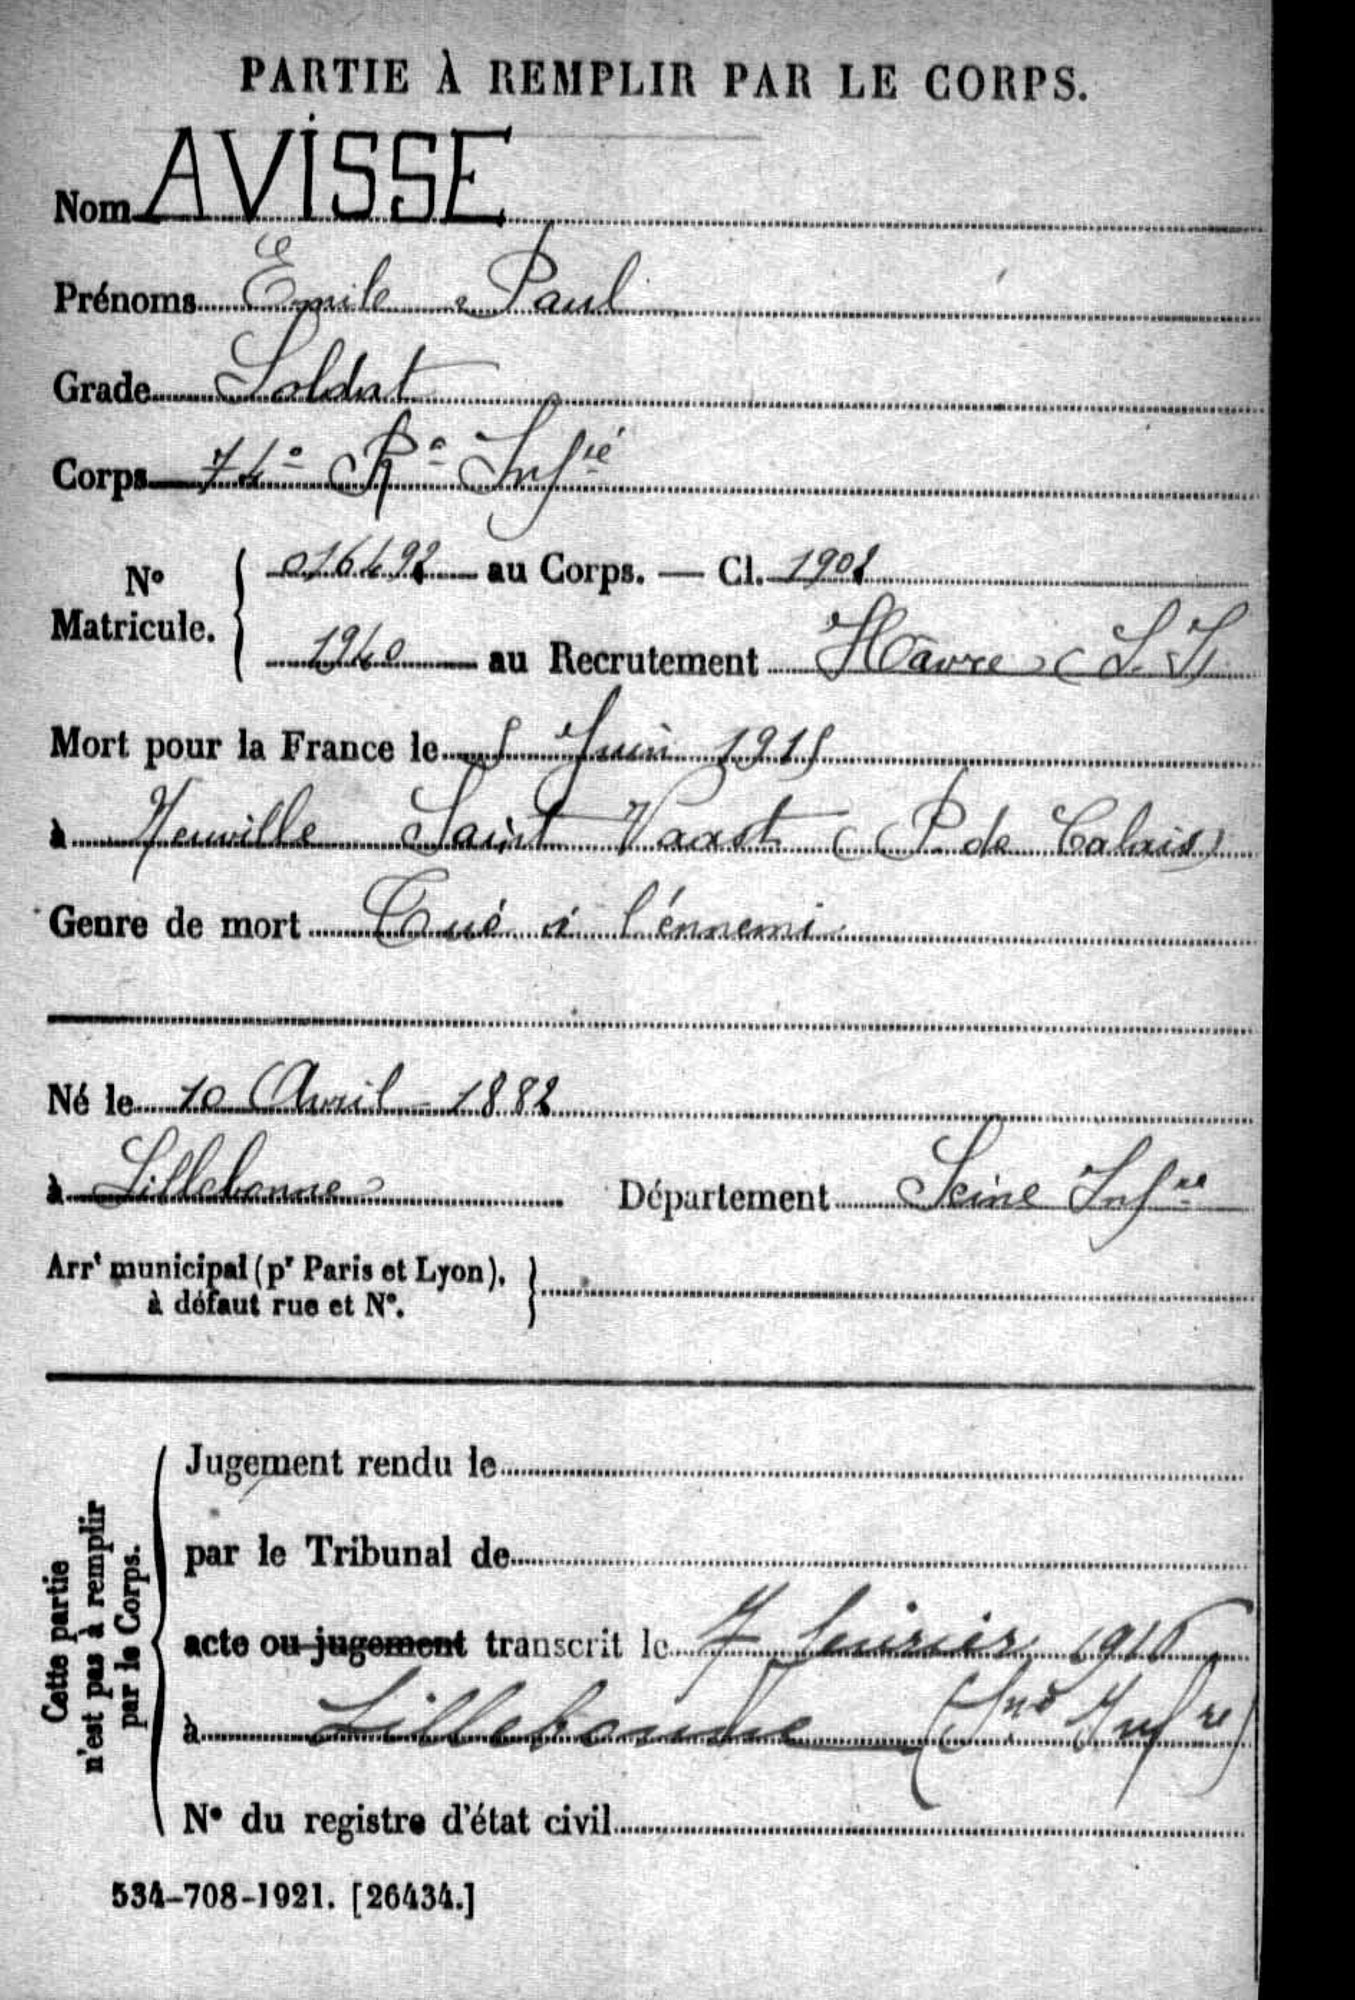 PARTIE À REMPLIR PAR LE CORPS.
Nom AVISSE
Prénoms Emile Paul
Grade Soldat
Corps 74e Rt Infie
No Matricule. { 016492 au Corps. — Cl. 1902
1940 au Recrutement Hâvre (S. I)
Mort pour la France le 5 Juin 1915
à Neuville Saint Vaast (P. de Calais)
Genre de mort Tué à l'énnemi
Né le 10 Avril 1882
à Lillebonne Département Seine Infre
Arrt municipal (pr Paris et Lyon), à défaut rue et No. }
Cette partie n'est pas à remplir par le Corps.
Jugement rendu le
par le Tribunal de
acte ou jugement transcrit le 7 février 1916
à Lillebonne (Sne Infre)
No du registre d'état civil
534-708-1921. [26434.]